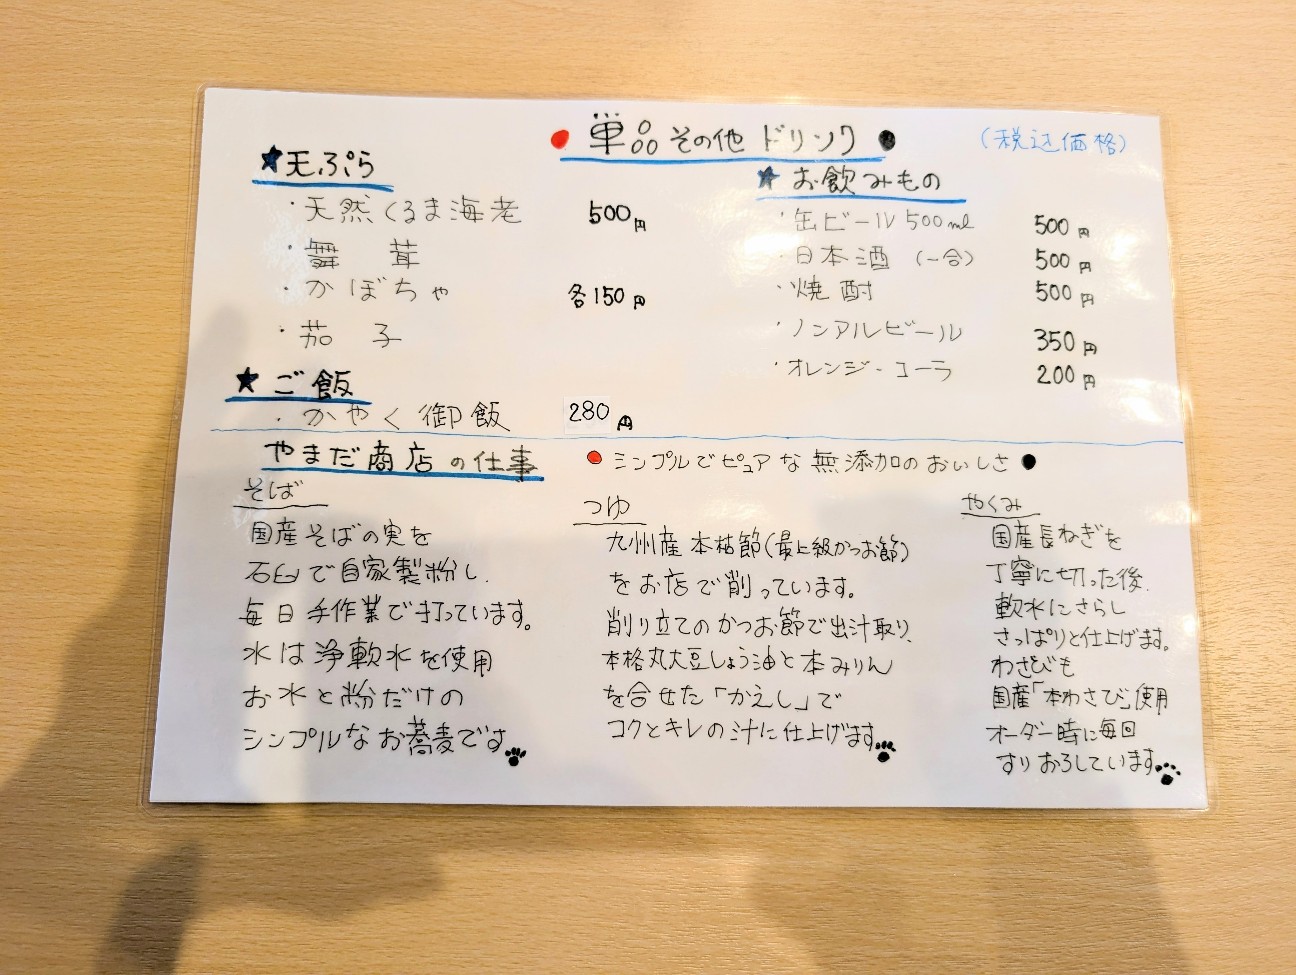 ● 単品その他ドリンク ●
(税込価格)
★天ぷら
・天然くるま海老 500円
・舞茸
・かぼちゃ 各150円
・茄子
★ご飯
・かやく御飯 280円
★お飲みもの
・缶ビール500ml 500円
・日本酒(一合) 500円
・焼酎 500円
・ノンアルビール 350円
・オレンジ・コーラ 200円
やまだ商店の仕事
● シンプルでピュアな無添加のおいしさ ●
そば
国産そばの実を
石臼で自家製粉し、
毎日手作業で打っています。
水は浄軟水を使用
お水と粉だけの
シンプルなお蕎麦です
つゆ
九州産本枯節(最上級かつお節)
をお店で削っています。
削り立てのかつお節で出汁取り、
本格丸大豆しょう油と本みりん
を合せた「かえし」で
コクとキレの汁に仕上げます
やくみ
国産長ねぎを
丁寧に切った後、
軟水にさらし
さっぱりと仕上げます。
わさびも
国産「本わさび」使用
オーダー時に毎回
すりおろしています